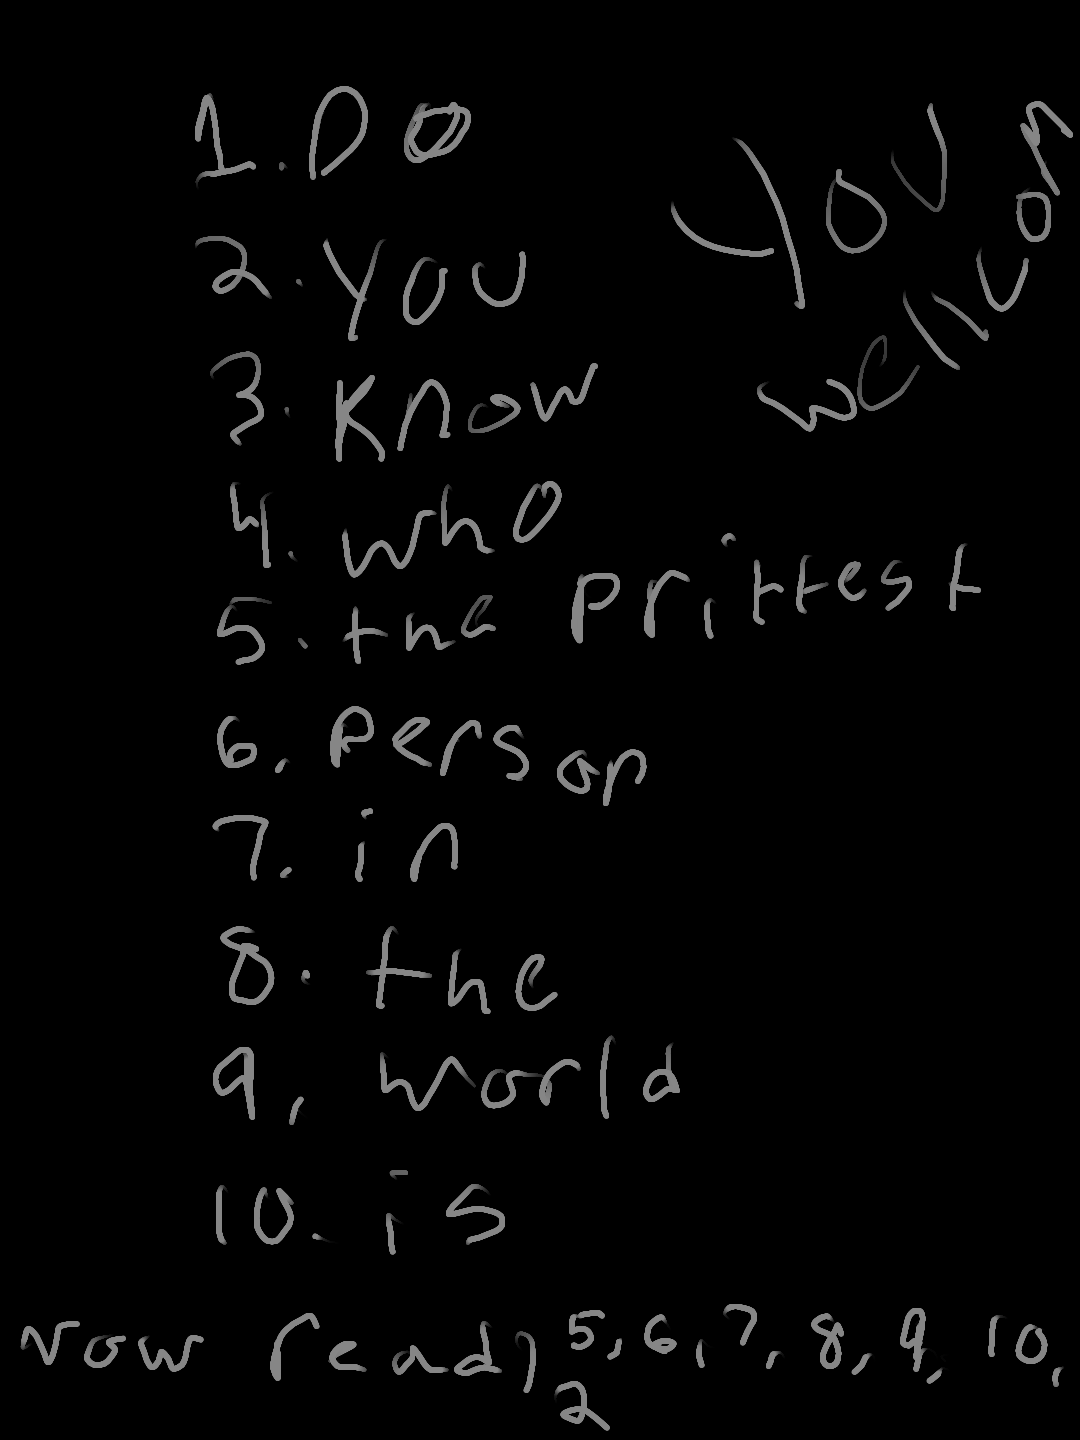 1. DO
2. you
3. Know
4. who
5. the prittest
6. person
7. in
8. the
9, world
10. is
Now read, 5, 6, 7, 8, 9, 10,
2
you
wellcom